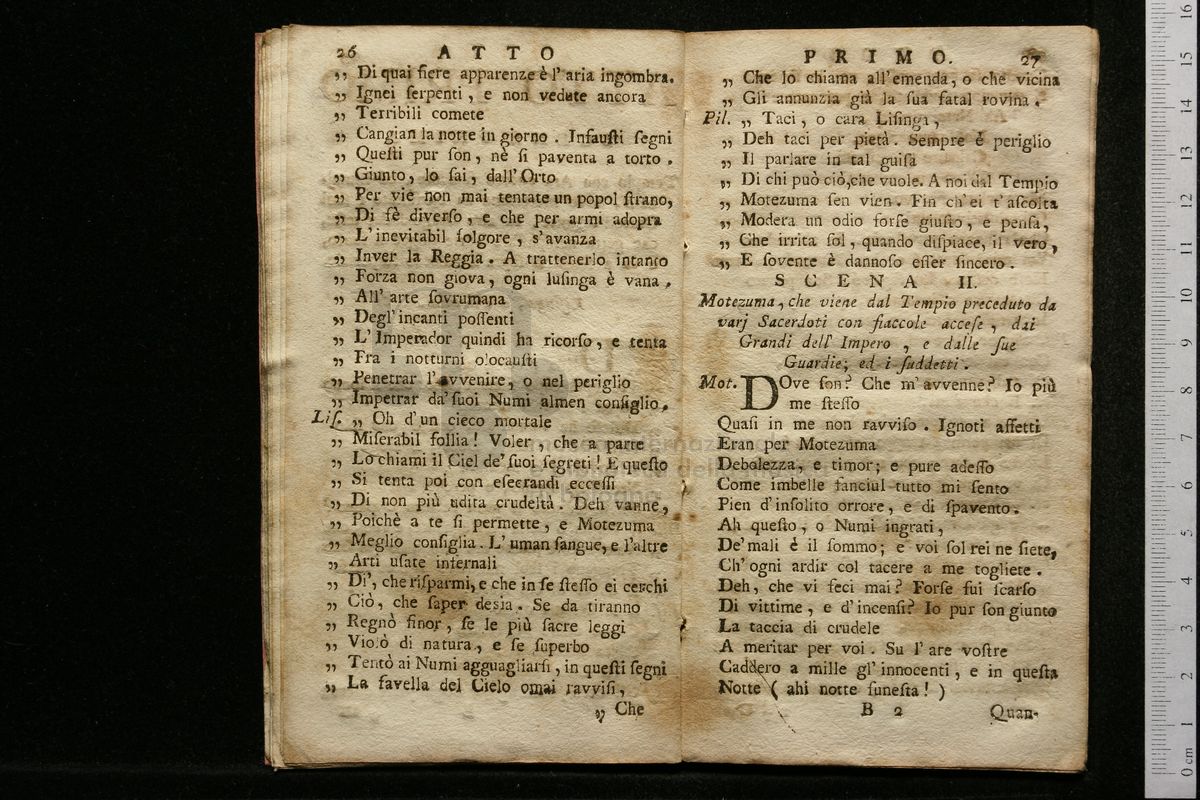 26 ATTO
„ Di quai fiere apparenze è l' aria ingombra.
„ Ignei ſerpenti, e non vedute ancora
„ Terribili comete
„ Cangian la notte in giorno. Infauſti ſegni
„ Queſti pur ſon, nè ſi paventa a torto.
„ Giunto, lo ſai, dall' Orto
„ Per vie non mai tentate un popol ſtrano,
„ Di ſè diverſo, e che per armi adopra
„ L' inevitabil folgore, s'avanza
„ Inver la Reggia. A trattenerlo intanto
„ Forza non giova, ogni luſinga è vana.
„ All' arte ſovrumana
„ Degl' incanti poſſenti
„ L' Imperador quindi ha ricorſo, e tenta
„ Fra i notturni olocauſti
„ Penetrar l'avvenire, o nel periglio
„ Impetrar da' ſuoi Numi almen conſiglio.
Liſ. „ Oh d'un cieco mortale
„ Miſerabil follia! Voler, che a parte
„ Lo chiami il Ciel de' ſuoi ſegreti! E queſto
„ Si tenta poi con eſecrandi ecceſſi
„ Di non più udita crudeltà. Deh vanne,
„ Poichè a te ſi permette, e Motezuma
„ Meglio conſiglia. L' uman ſangue, e l'altre
„ Arti uſate infernali
„ Di', che riſparmi, e che in ſe ſteſſo ei cerchi
„ Ciò, che ſaper deſia. Se da tiranno
„ Regnò finor, ſe le più ſacre leggi
„ Violò di natura, e ſe ſuperbo
„ Tentò ai Numi agguagliarſi, in queſti ſegni
„ La favella del Cielo omai ravviſi,
„ Che
PRIMO. 27
„ Che lo chiama all'emenda, o che vicina
„ Gli annunzia già la ſua fatal rovina.
Pil. „ Taci, o cara Liſinga,
„ Deh taci per pietà. Sempre è periglio
„ Il parlare in tal guiſa
„ Di chi può ciò, che vuole. A noi dal Tempio
„ Motezuma ſen vien. Fin ch'ei t'aſcolta
„ Modera un odio forſe giuſto, e penſa,
„ Che irrita ſol, quando diſpiace, il vero,
„ E ſovente è dannoſo eſſer ſincero.
SCENA II.
Motezuma, che viene dal Tempio preceduto da
varj Sacerdoti con fiaccole acceſe, dai
Grandi dell' Impero, e dalle ſue
Guardie; ed i ſuddetti.
Mot. DOve ſon? Che m'avvenne? Io più
me ſteſſo
Quaſi in me non ravviſo. Ignoti affetti
Eran per Motezuma
Debolezza, e timor; e pure adeſſo
Come imbelle fanciul tutto mi ſento
Pien d'inſolito orrore, e di ſpavento.
Ah queſto, o Numi ingrati,
De' mali è il ſommo; e voi ſol rei ne ſiete,
Ch' ogni ardir col tacere a me togliete.
Deh, che vi feci mai? Forſe fui ſcarſo
Di vittime, e d'incenſi? Io pur ſon giunto
La taccia di crudele
A meritar per voi. Su l' are voſtre
Caddero a mille gl' innocenti, e in queſta
Notte ( ahi notte funeſta! )
B 2 Quan-